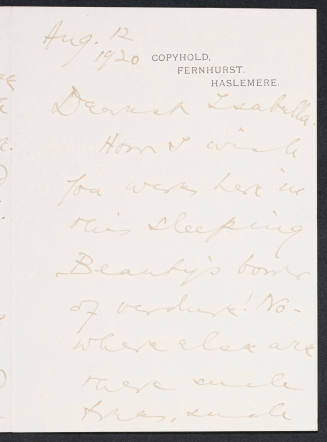 Aug. 12
1920
COPYHOLD,
FERNHURST.
HASLEMERE.
Dearest Isabella.
How I wish
you were here in
this sleeping
Beauty's bower
of verdure! No-
where else are
there such
trees, such